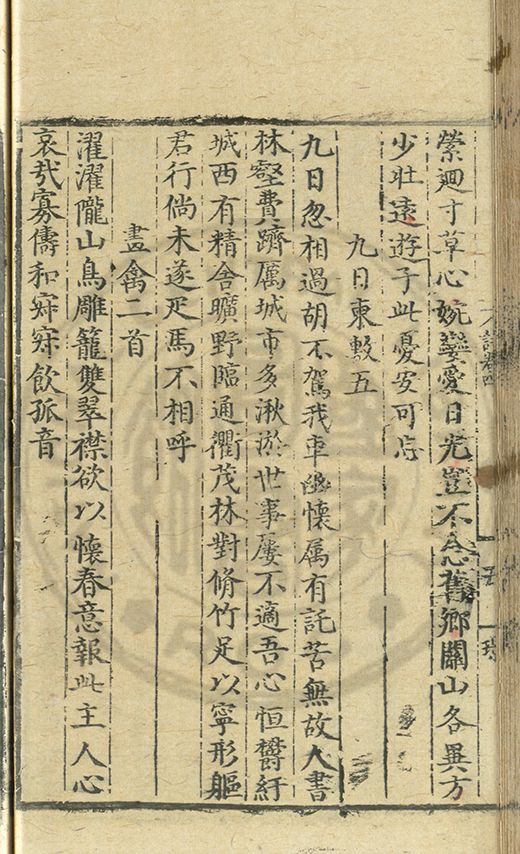 縈迴寸草心婉孌愛日光豈不念舊鄉關山各異方
少壯遠遊子此憂安可忘
九日東敷五
九日忽相過胡不駕我車幽懷属有託苦無故人書
林壑費躋厲城市多湫淤世事屢不適吾心恒欝紆
城西有精舍曠野臨通衢茂林對脩竹足以寧形軀
君行倘未遂疋馬不相呼
畫禽二首
濯濯隴山鳥雕籠雙翠襟欲以懷春意報此主人心
哀哉寡儔和寂寂飲孤音